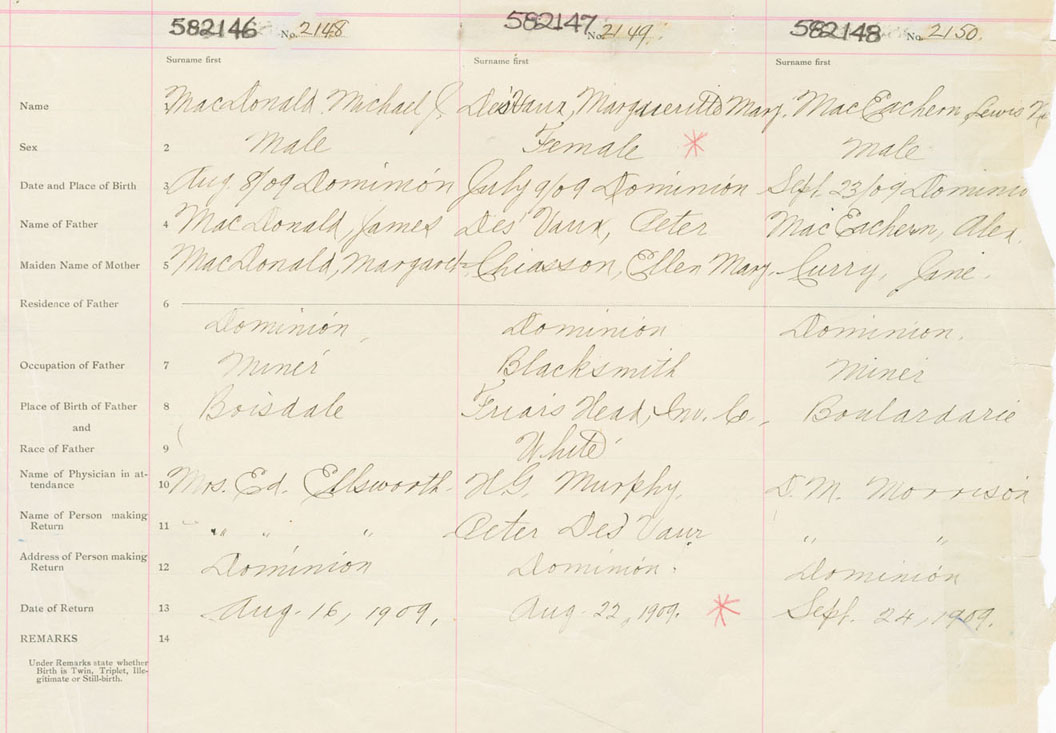 582146 No. 2148 582147 No. 2149 582148 No. 2150
Surname first Surname first Surname first
Name 1 MacDonald Michael J. Des Vaux, Margueritte Mary. MacEachern, Lewis
Sex 2 Male Female * Male
Date and Place of Birth 3 Aug. 8/09 Dominion July 9/09 Dominion Sept. 23/09 Dominio
Name of Father 4 MacDonald, James Des Vaux, Peter MacEachern, Alex.
Maiden Name of Mother 5 MacDonald, Margaret Chiasson, Ellen Mary. Curry, Jane.
Residence of Father 6
Dominion, Dominion Dominion.
Occupation of Father 7 Miner Blacksmith Miner
Place of Birth of Father 8 Boisdale Friars Head, Inv. Co., Boulardarie
and
Race of Father 9 White
Name of Physician in at-
tendance 10 Mrs. Ed. Ellsworth. H.G. Murphy. D. M. Morrison
Name of Person making
Return 11 " " " Peter Des Vaux " "
Address of Person making
Return 12 Dominion Dominion. Dominion
Date of Return 13 Aug. 16, 1909, Aug. 22, 1909. * Sept. 24, 1909.
REMARKS 14
Under Remarks state whether
Birth is Twin, Triplet, Ille-
gitimate or Still-birth.